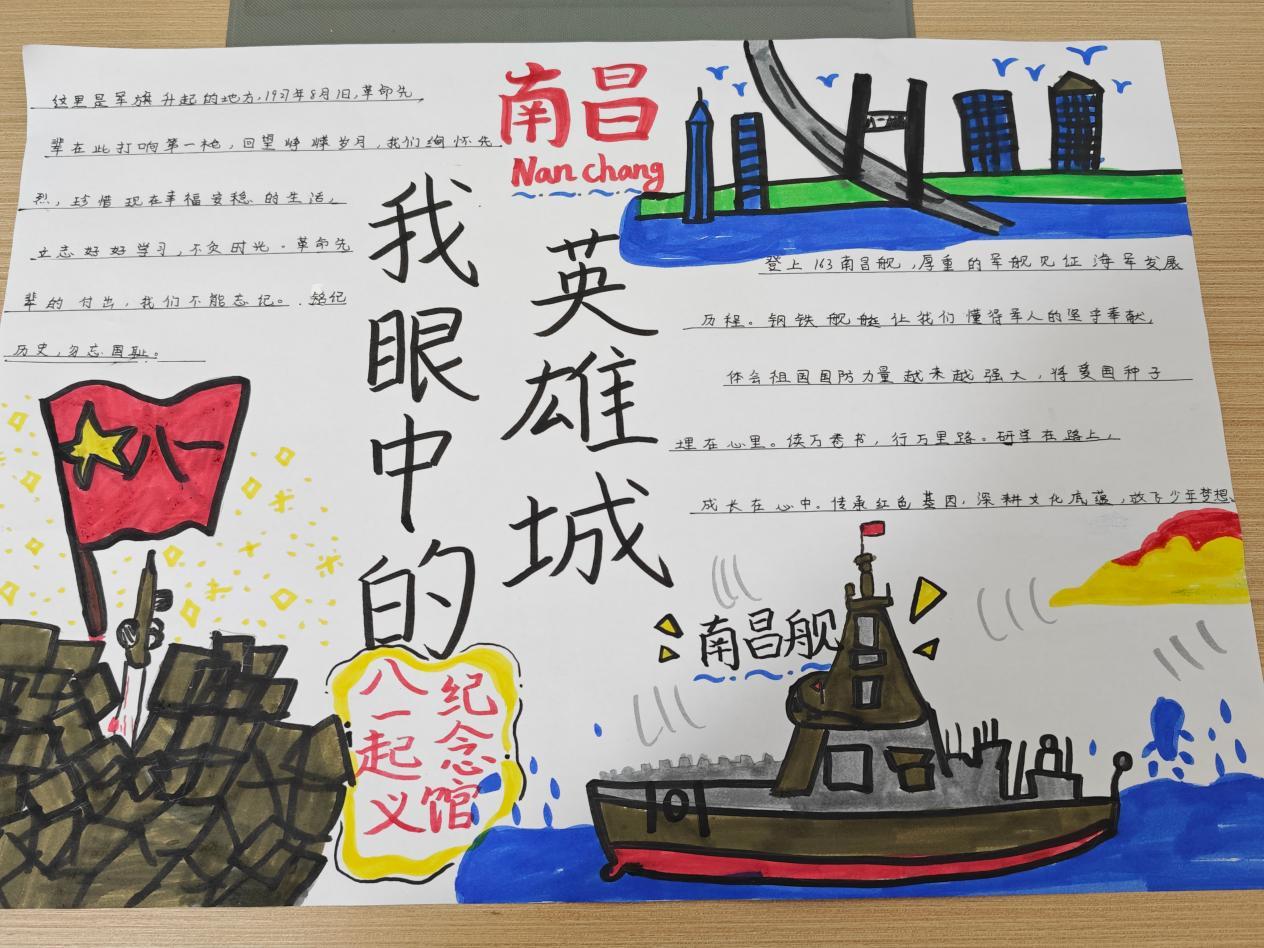 这里是军旗升起的地方,1927年8月1日,革命先
辈在此打响第一枪,回望峥嵘岁月,我们缅怀先
烈,珍惜现在幸福安稳的生活,
立志好好学习,不负时光。革命先
辈的付出,我们不能忘记。铭记
历史,勿忘国耻。
南昌
Nan chang
我眼中的
英雄城
登上163南昌舰,厚重的军舰见证海军发展
历程。钢铁舰艇让我们懂得军人的坚守奉献,
体会祖国国防力量越来越强大,将爱国种子
埋在心里。读万卷书,行万里路。研学在路上,
成长在心中。传承红色基因,深耕文化底蕴,放飞少年梦想、
八一
八一起义
纪念馆
南昌舰
101